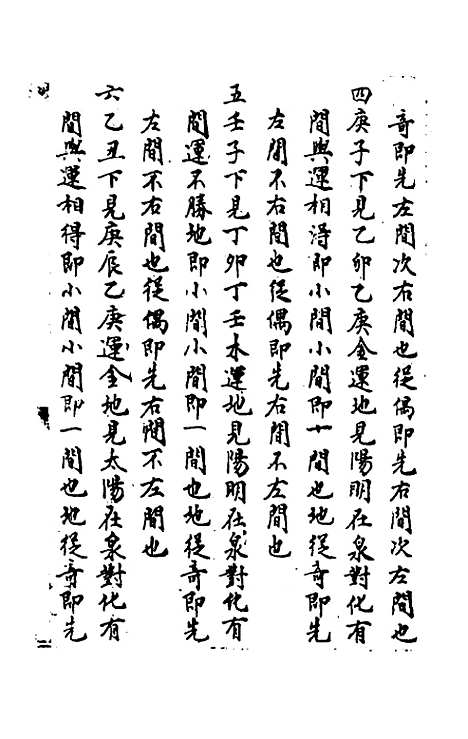 奇即先左間次右間也從偶即先右間次左間也
四庚子下見乙卯乙庚金運地見陽明在泉對化有
間與運相得即小間小間即十間也地從奇即先
左間不右間也從偶即先右間不左間也
五壬子下見丁卯丁壬木運地見陽明在泉對化有
間運不勝地即小間小間即一間也地從奇即先
左間不右間也從偶即先右間不左間也
六乙丑下見庚辰乙庚運金地見太陽在泉對化有
間與運相得即小間小間即一間也地從奇即先